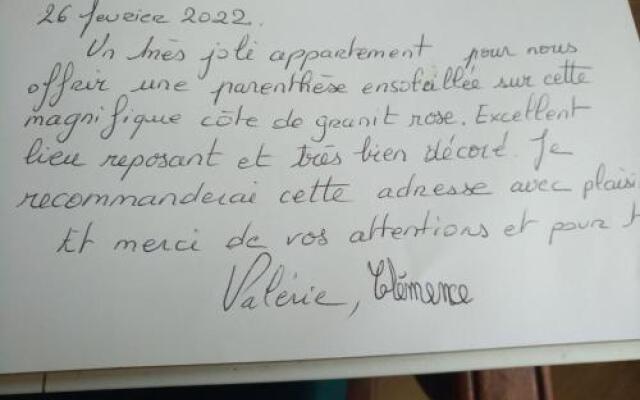 26 fevrier 2022.
Un très joli appartement pour nous
offrir une parenthèse ensoleillée sur cette
magnifique côte de granit rose. Excellent
lieu reposant et très bien décoré. Je
recommanderai cette adresse avec plaisi
Et merci de vos attentions et pour t
Valérie, Clémence